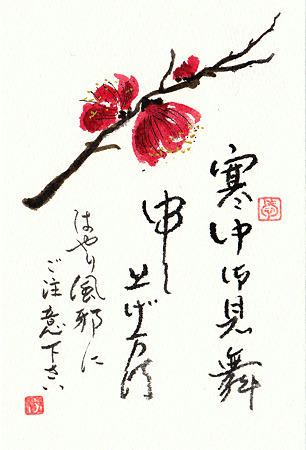 寒中御見舞
申し
上げます
はやり風邪に
ご注意下さい